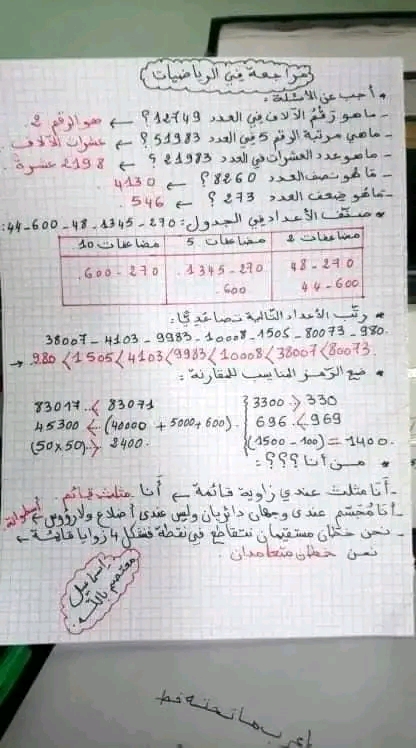 مراجعة في الرياضيات
* أجب عن الأسئلة :
- ما هو رقم الآلاف في العدد 12749؟ ← هو الرقم 2
- ما هي مرتبة الرقم 5 في العدد 51983؟ ← عشرات الآلاف.
- ما هو عدد العشرات في العدد 21983؟ ← 2198 عشرة.
- ما هو نصف العدد 8260؟ ← 4130
- ما هو ضعف العدد 273؟ ← 546.
* صنّف الأعداد في الجدول: 270-1345-48-600-44:
مضاعفات 2 | مضاعفات 5 | مضاعفات 10
48-270 | 1345-270. | 600-270.
44-600 | 600.
* رتّب الأعداد التالية تصاعديًا:
38007-4103-9983-10008-1505-80073-980.
→ 980<1505<4103<9983<10008<38007<80073.
* ضع الرمز المناسب للمقارنة :
83017..<..83071
45300..<..(40000+5000+600).
(50x50)..>..2400.
3300..>..330
696..<..969
(1500-100)=1400.
* من أنا ؟؟؟ :
- أنا مثلث عندي زاوية قائمة ← أنا مثلث قائم.
- أنا مجسّم عندي وجهان دائريان وليس عندي أضلاع ولا رؤوس ← أسطوانة
- نحن خطان مستقيمان نتقاطع في نقطة فنشكل 4 زوايا قائمة ←
نحن خطان متعامدان
إسماعيل
معتصم بالله.
أعرب ما تحته خط